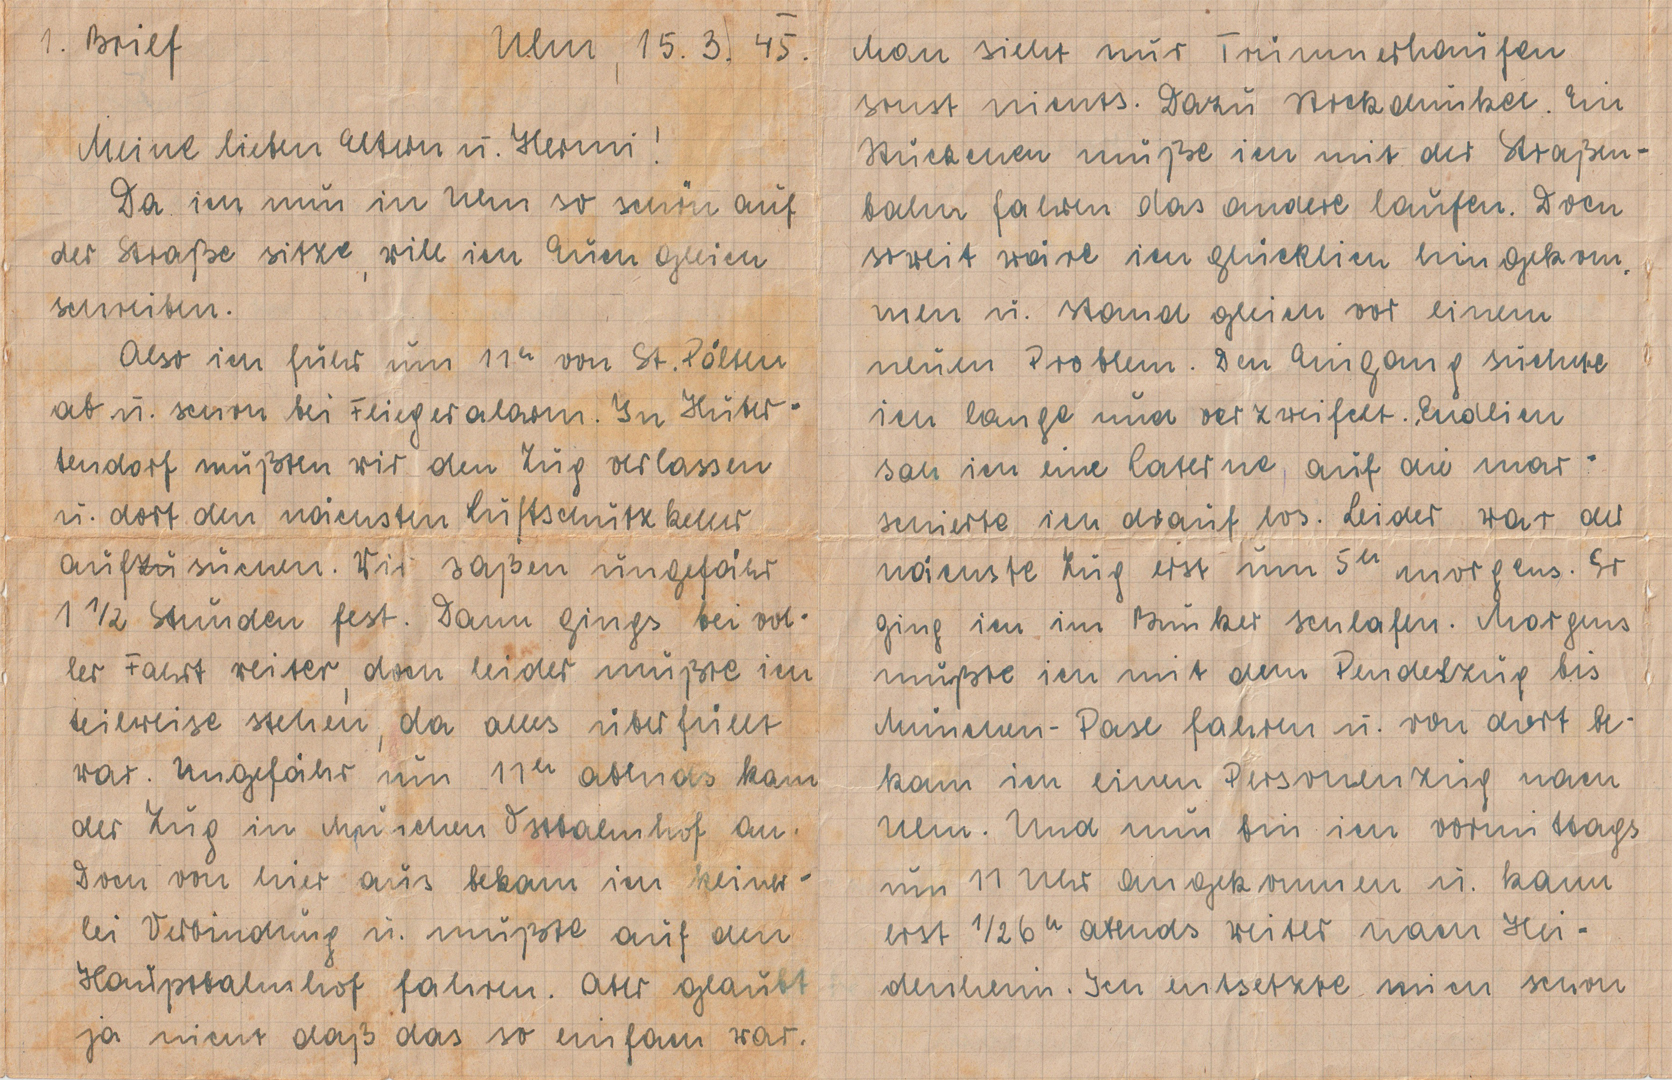 1. Brief Ulm, 15. 3. 45.
Meine lieben Eltern u. Hermi!
Da ich nun in Ulm so schön auf
der Straße sitze, will ich Euch gleich
schreiben.
Also ich fuhr um 11ʰ von St. Pölten
ab u. schon bei Fliegeralarm. In Huber-
tendorf mußten wir den Zug verlassen
u. dort den nächsten Luftschutzkeller
aufzusuchen. Wir saßen ungefähr
1 1/2 Stunden fest. Dann gings bei vol-
ler Fahrt weiter, doch leider mußte ich
teilweise stehen, da alles überfüllt
war. Ungefähr um 11ʰ abends kam
der Zug in München Ostbahnhof an.
Doch von hier aus bekam ich keiner-
lei Verbindung u. mußte auf den
Hauptbahnhof fahren. Aber glaubt
ja nicht daß das so einfach war.
Man sieht nur Trümmerhaufen
sonst nichts. Dazu stockdunkel. Ein
Stückchen mußte ich mit der Straßen-
bahn fahren das andere laufen. Doch
soweit wäre ich glücklich hingekom-
men u. stand gleich vor einem
neuen Problem. Den Eingang suchte
ich lange und verzweifelt. Endlich
sah ich eine Laterne, auf die mar-
schierte ich drauf los. Leider war der
nächste Zug erst um 5ʰ morgens. Er
ging ich im Bunker schlafen. Morgens
mußte ich mit dem Pendelzug bis
München-Pase fahren u. von dort be-
kam ich einen Personenzug nach
Ulm. Und nun bin ich vormittags
um 11 Uhr angekommen u. kann
erst 1/26ʰ abends weiter nach Hei-
denheim. Ich entsetzte mich schon